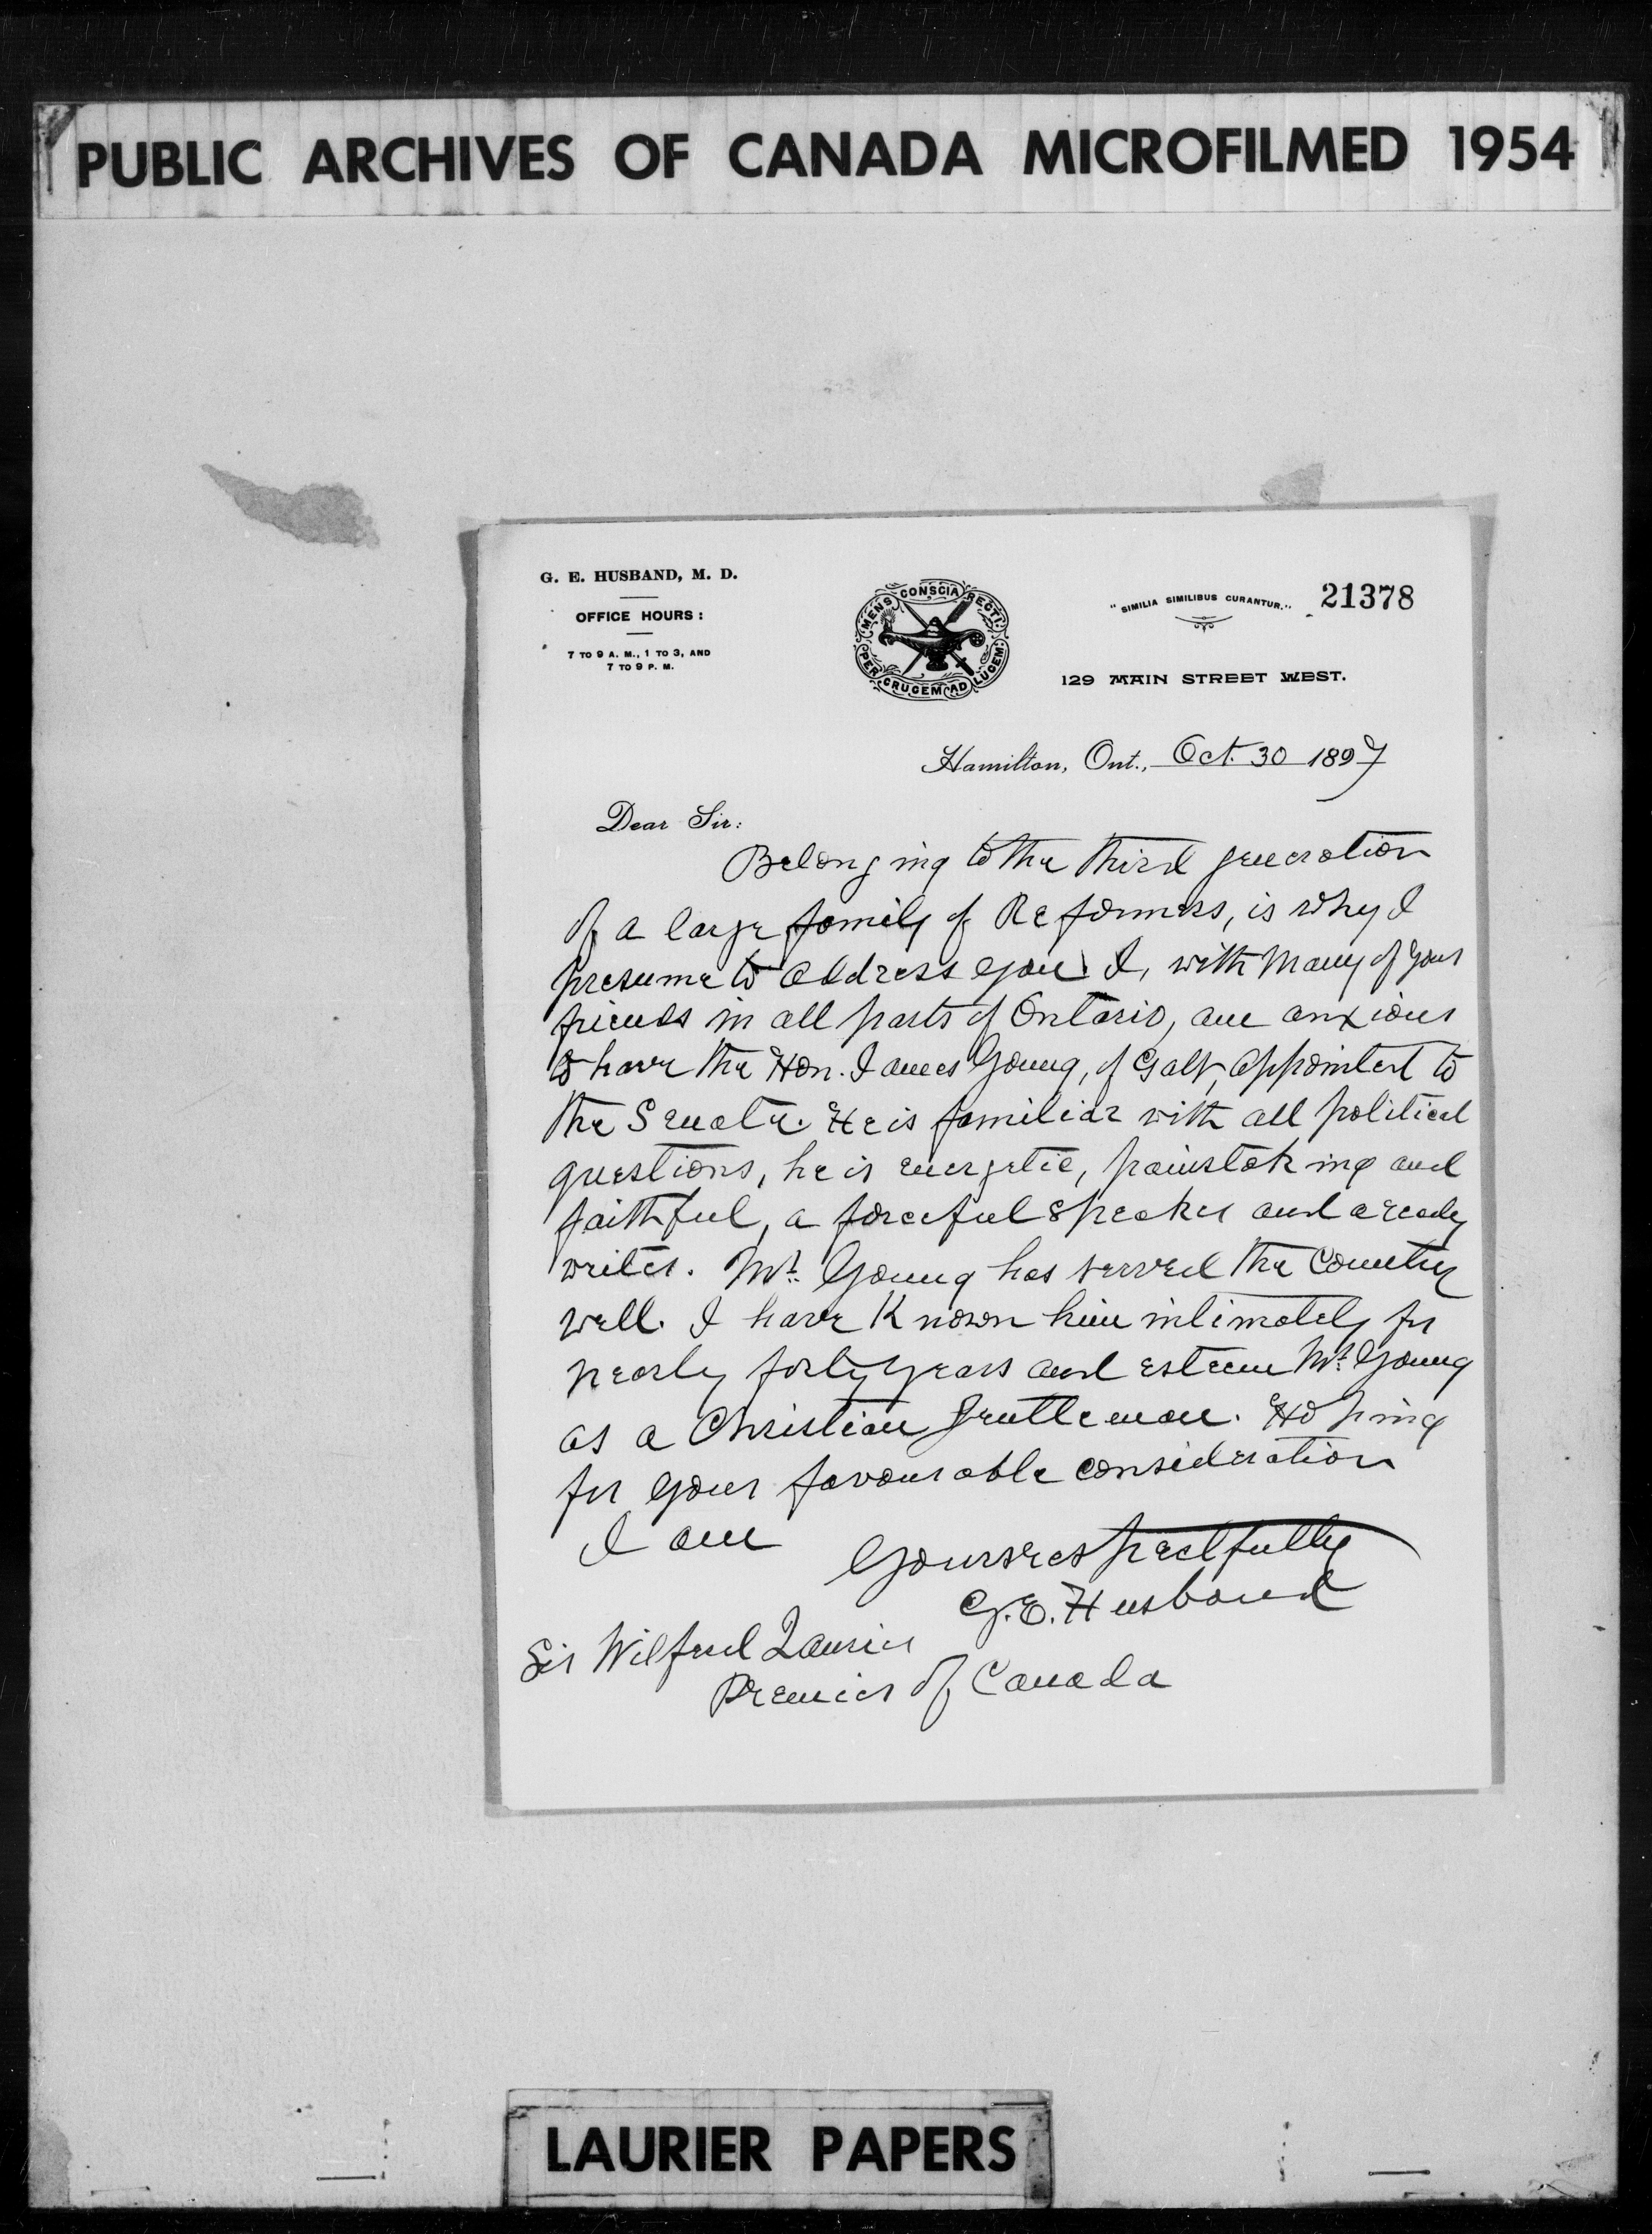 PUBLIC ARCHIVES OF CANADA MICROFILMED 1954
G. E. HUSBAND, M. D.
OFFICE HOURS:
7 TO 9 A. M., 1 TO 3, AND
7 TO 9 P. M.
MENS CONSCIA RECTI.
PER CRUCEM AD LUCEM.
"SIMILIA SIMILIBUS CURANTUR."
21378
129 MAIN STREET WEST.
Hamilton, Ont., Oct. 30 1897
Dear Sir:
Belonging to the third generation
of a large family of Reformers, is why I
presume to address you. I, with many of your
friends in all parts of Ontario, am anxious
to have the Hon. James Young, of Galt, appointed to
the Senate. He is familiar with all political
questions, he is energetic, painstaking and
faithful, a forceful speaker and a ready
writer. Mr. Young has served the Country
well. I have Known him intimately for
nearly forty years and esteem Mr. Young
as a Christian gentleman. Hoping
for your favourable consideration
I am
Yours respectfully
G. E. Husband
Sir Wilfred Laurier
Premier of Canada
LAURIER PAPERS